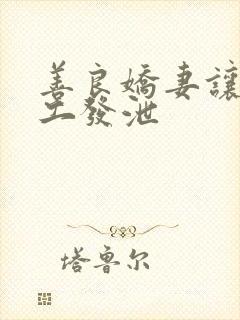 善良嬌妻讓
工發泄
塔鲁尔